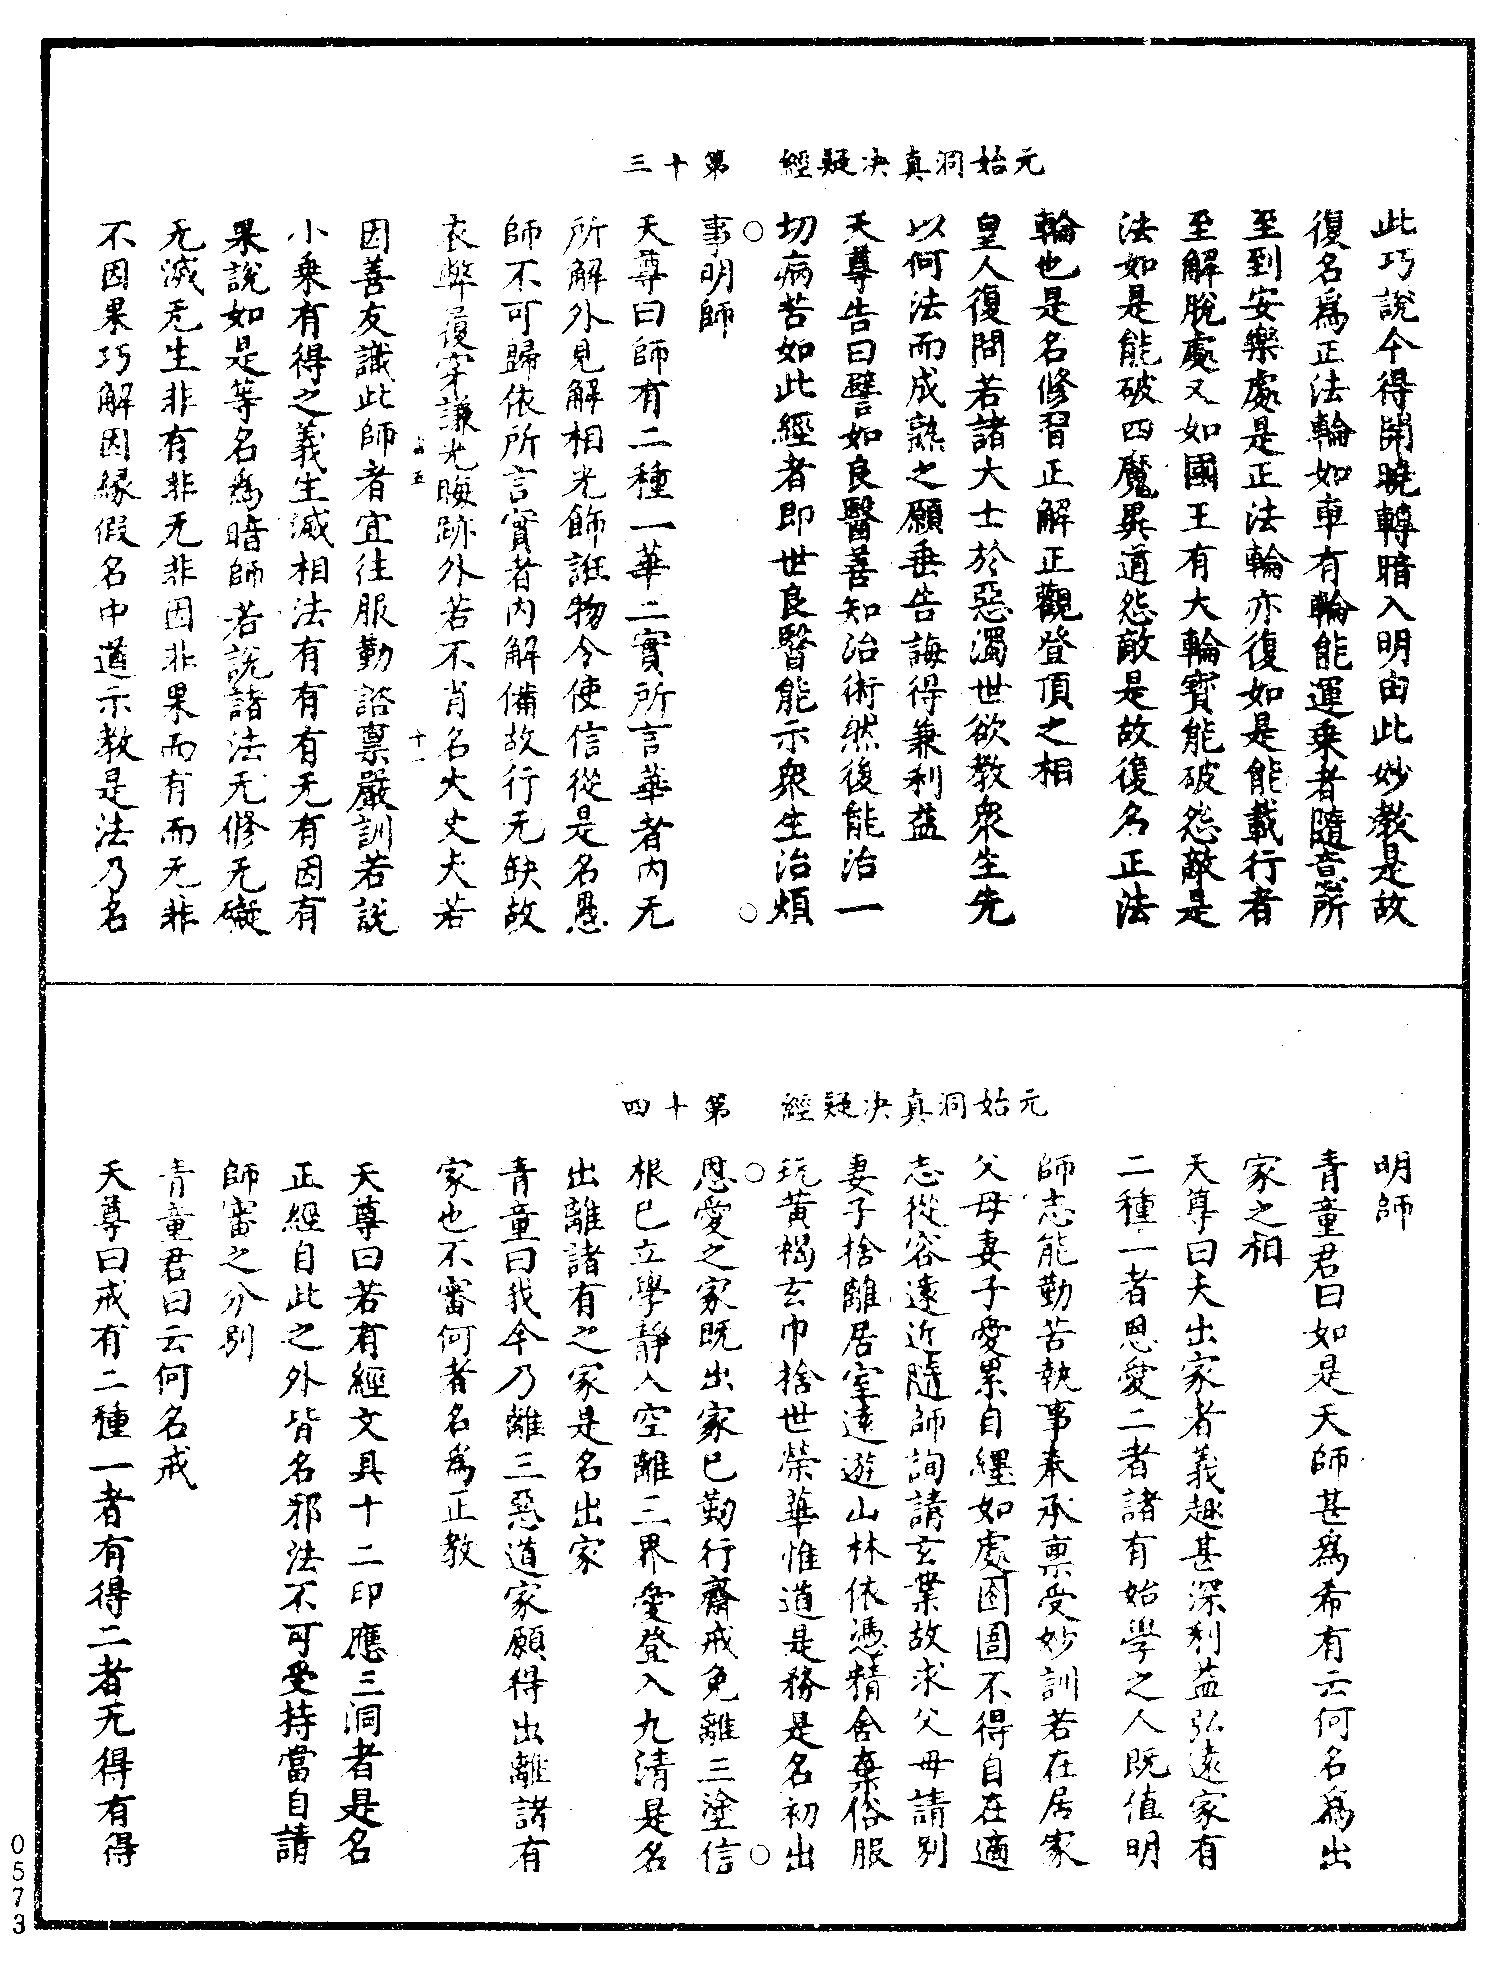 元始洞真決疑經　第十三
此巧說今得開曉轉暗入明由此妙教是故
復名爲正法輪如車有輪能運乗者隨意所
至到安樂處是正法輪亦復如是能載行者
至解脫處又如國王有大輪寶能破怨敵是
法如是能破四魔異道怨敵是故復名正法
輪也是名修習正解正觀登頂之相
皇人復問若諸大士於惡濁世欲教衆生先
以何法而成熟之願垂告誨得兼利益
天尊告曰譬如良醫善知治術然後能治一
切病苦如此經者即世良醫能示衆生治煩
事明師
天尊曰師有二種一華二實所言華者内无
所解外見解相光飾誑物令使信從是名愚
師不可歸依所言實者内解備故行无缺故
衣弊履穿謙光晦跡外若不肖名大丈夫若
因善友識此師者宜往服勤諮禀嚴訓若說
小乗有得之義生滅相法有有有无有因有
果說如是等名爲暗師若說諸法无修无礙
无滅无生非有非无非因非果而有而无非
不因果巧解因緣假名中道示教是法乃名
十一
元始洞真決疑經　第十四
明師
青童君曰如是天師甚爲希有云何名爲出
家之相
天尊曰夫出家者義趣甚深利益弘遠家有
二種一者恩愛二者諸有始學之人既值明
師志能勤苦執事奉承禀受妙訓若在居家
父母妻子愛累自纒如處囹圄不得自在適
志從容遠近隨師詢請玄業故求父母請别
妻子捨離居室遠遊山林依憑精舍棄俗服
玩黄褐玄巾捨世榮華惟道是務是名初出
恩愛之家既出家已勤行齋戒免離三塗信
根已立學靜入空離三界愛登入九清是名
出離諸有之家是名出家
青童曰我今乃離三惡道家願得出離諸有
家也不審何者名爲正教
天尊曰若有經文具十二印應三洞者是名
正經自此之外皆名邪法不可受持當自請
師審之分别
青童君曰云何名戒
天尊曰戒有二種一者有得二者无得有得
0573